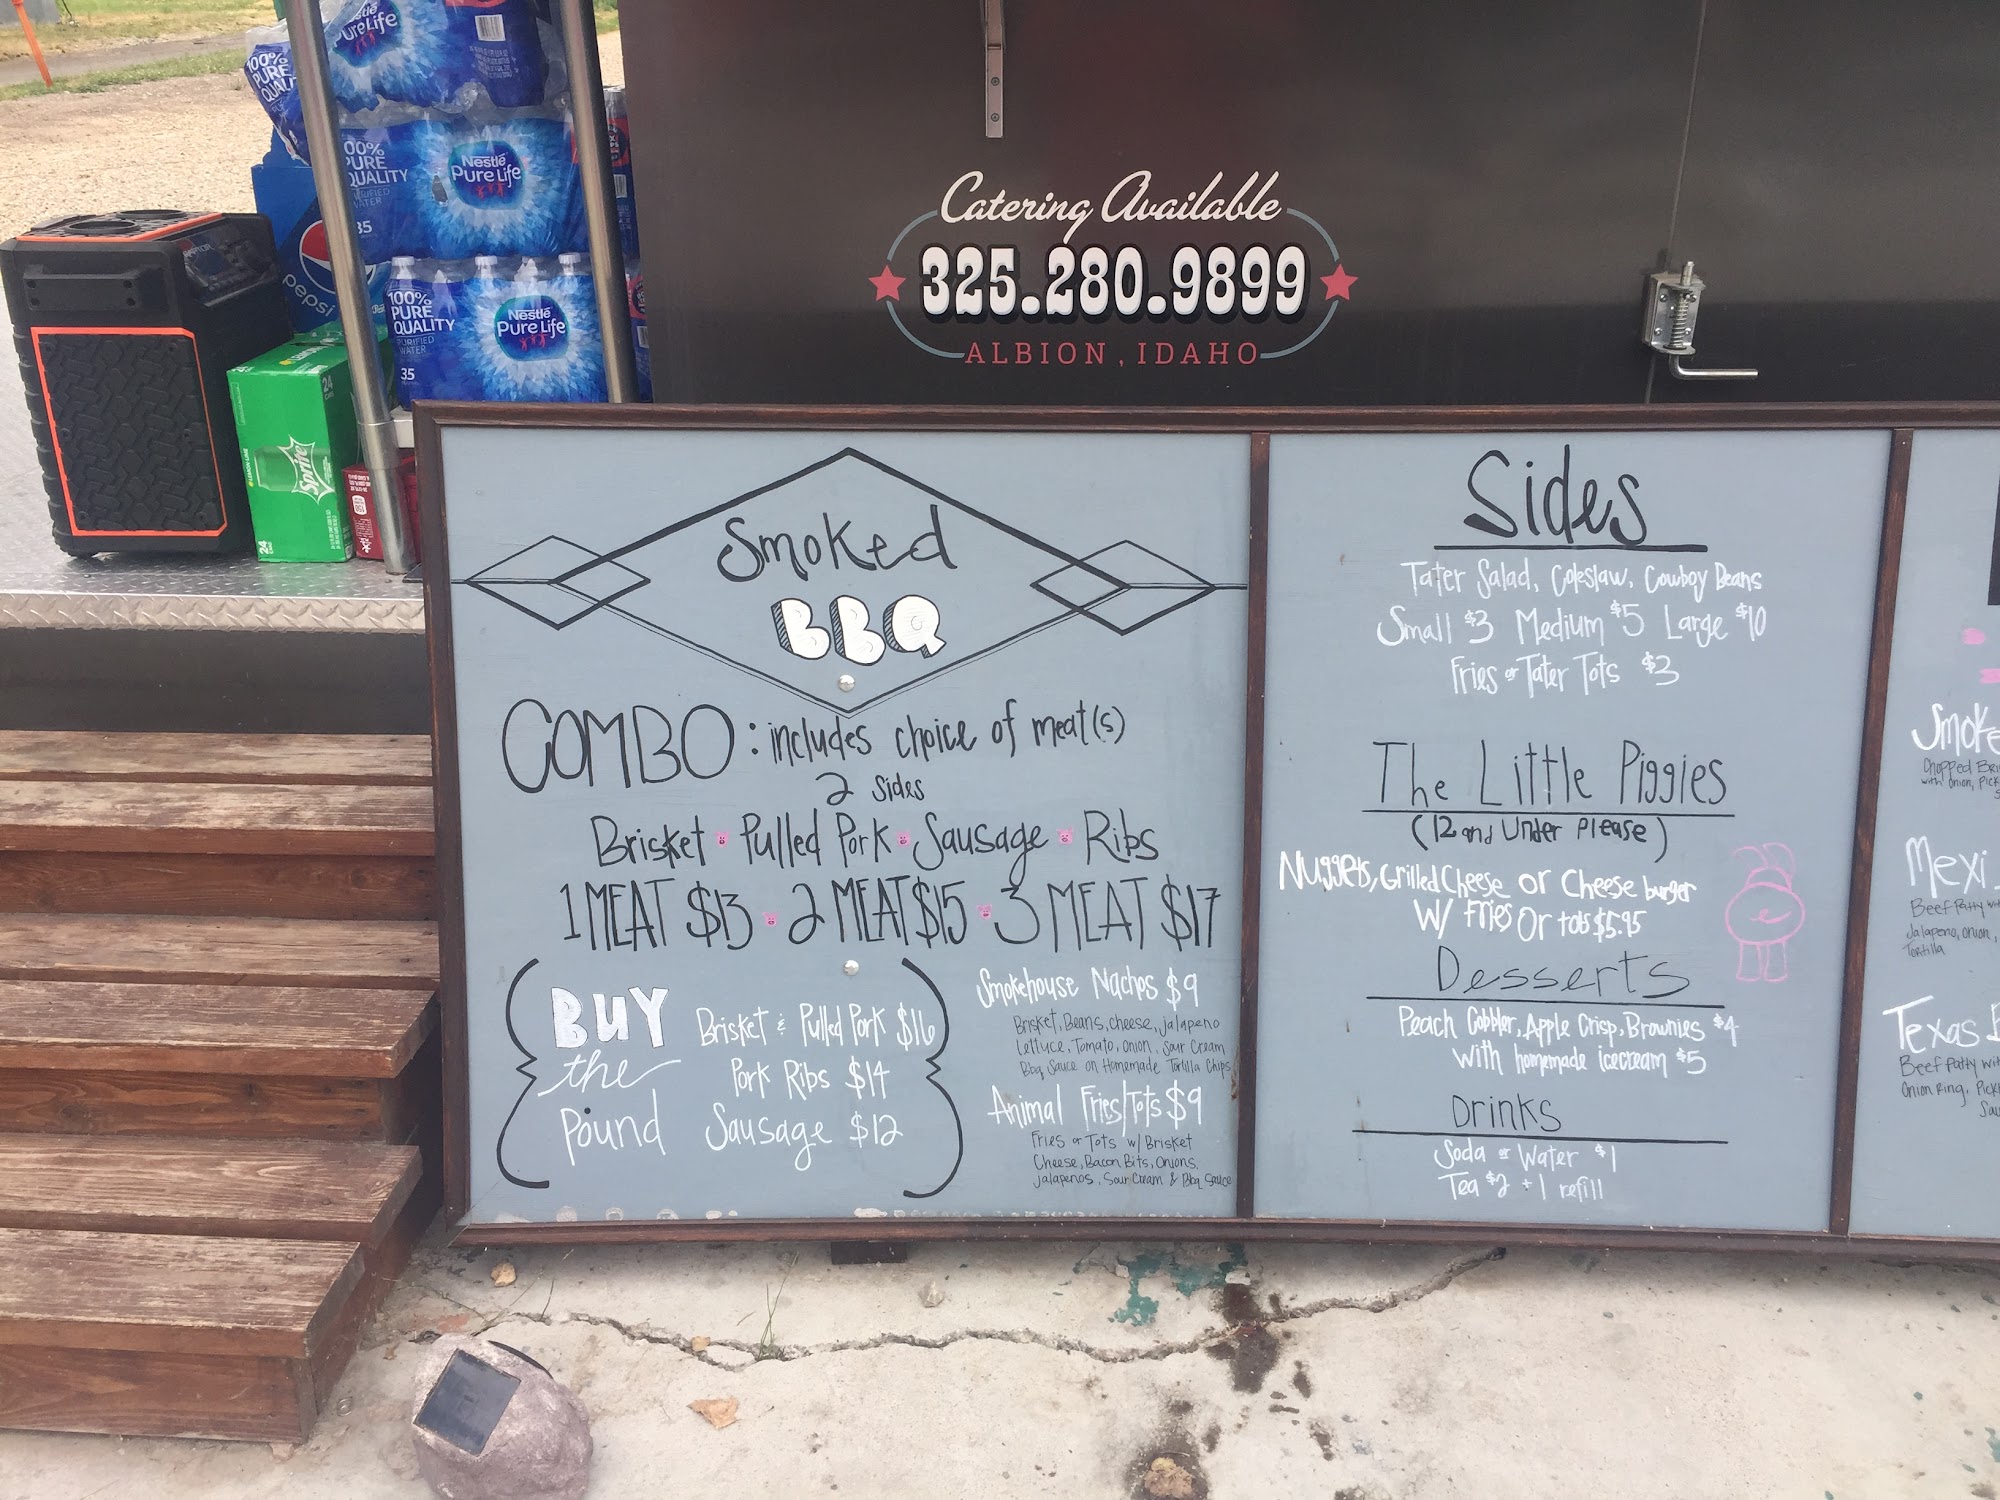 Nestlé
Pure Life
100%
PURE
QUALITY
100%
PURE
QUALITY
PURIFIED
WATER
35
Nestlé
Pure Life
pepsi
100%
PURE
QUALITY
PURIFIED
WATER
35
Nestlé
Pure Life
24
Sprite
24
Catering Available
325.280.9899
ALBION, IDAHO
Smoked
BBQ
COMBO: includes choice of meat(s)
2 sides
Brisket Pulled Pork Sausage Ribs
1 MEAT $13 2 MEAT $15 3 MEAT $17
BUY
the
Pound
Brisket & Pulled Pork $16
Pork Ribs $14
Sausage $12
Smokehouse Nachos $9
Brisket, Beans, cheese, jalapeno
lettuce, Tomato, onion, Sour Cream
Bbq Sauce on Homemade Tortilla Chips
Animal Fries/Tots $9
Fries or Tots w/ Brisket
Cheese, Bacon Bits, Onions,
jalapenos, Sour Cream & Bbq Sauce
Sides
Tater Salad, Coleslaw, Cowboy Beans
Small $3 Medium $5 Large $10
Fries or Tater Tots $3
The Little Piggies
(12 and Under Please)
Nuggets, Grilled Cheese or Cheese burger
w/ Fries or tots $5.95
Desserts
Peach Cobbler, Apple Crisp, Brownies $4
with homemade icecream $5
Drinks
Soda or Water $1
Tea $2 + 1 refill
Smoke
Chopped Bri
with onion, Pick
Mexi
Beef Patty wit
Jalapeno, onion,
Tortilla
Texas
Beef Patty wit
Onion Ring, Pick
Sau